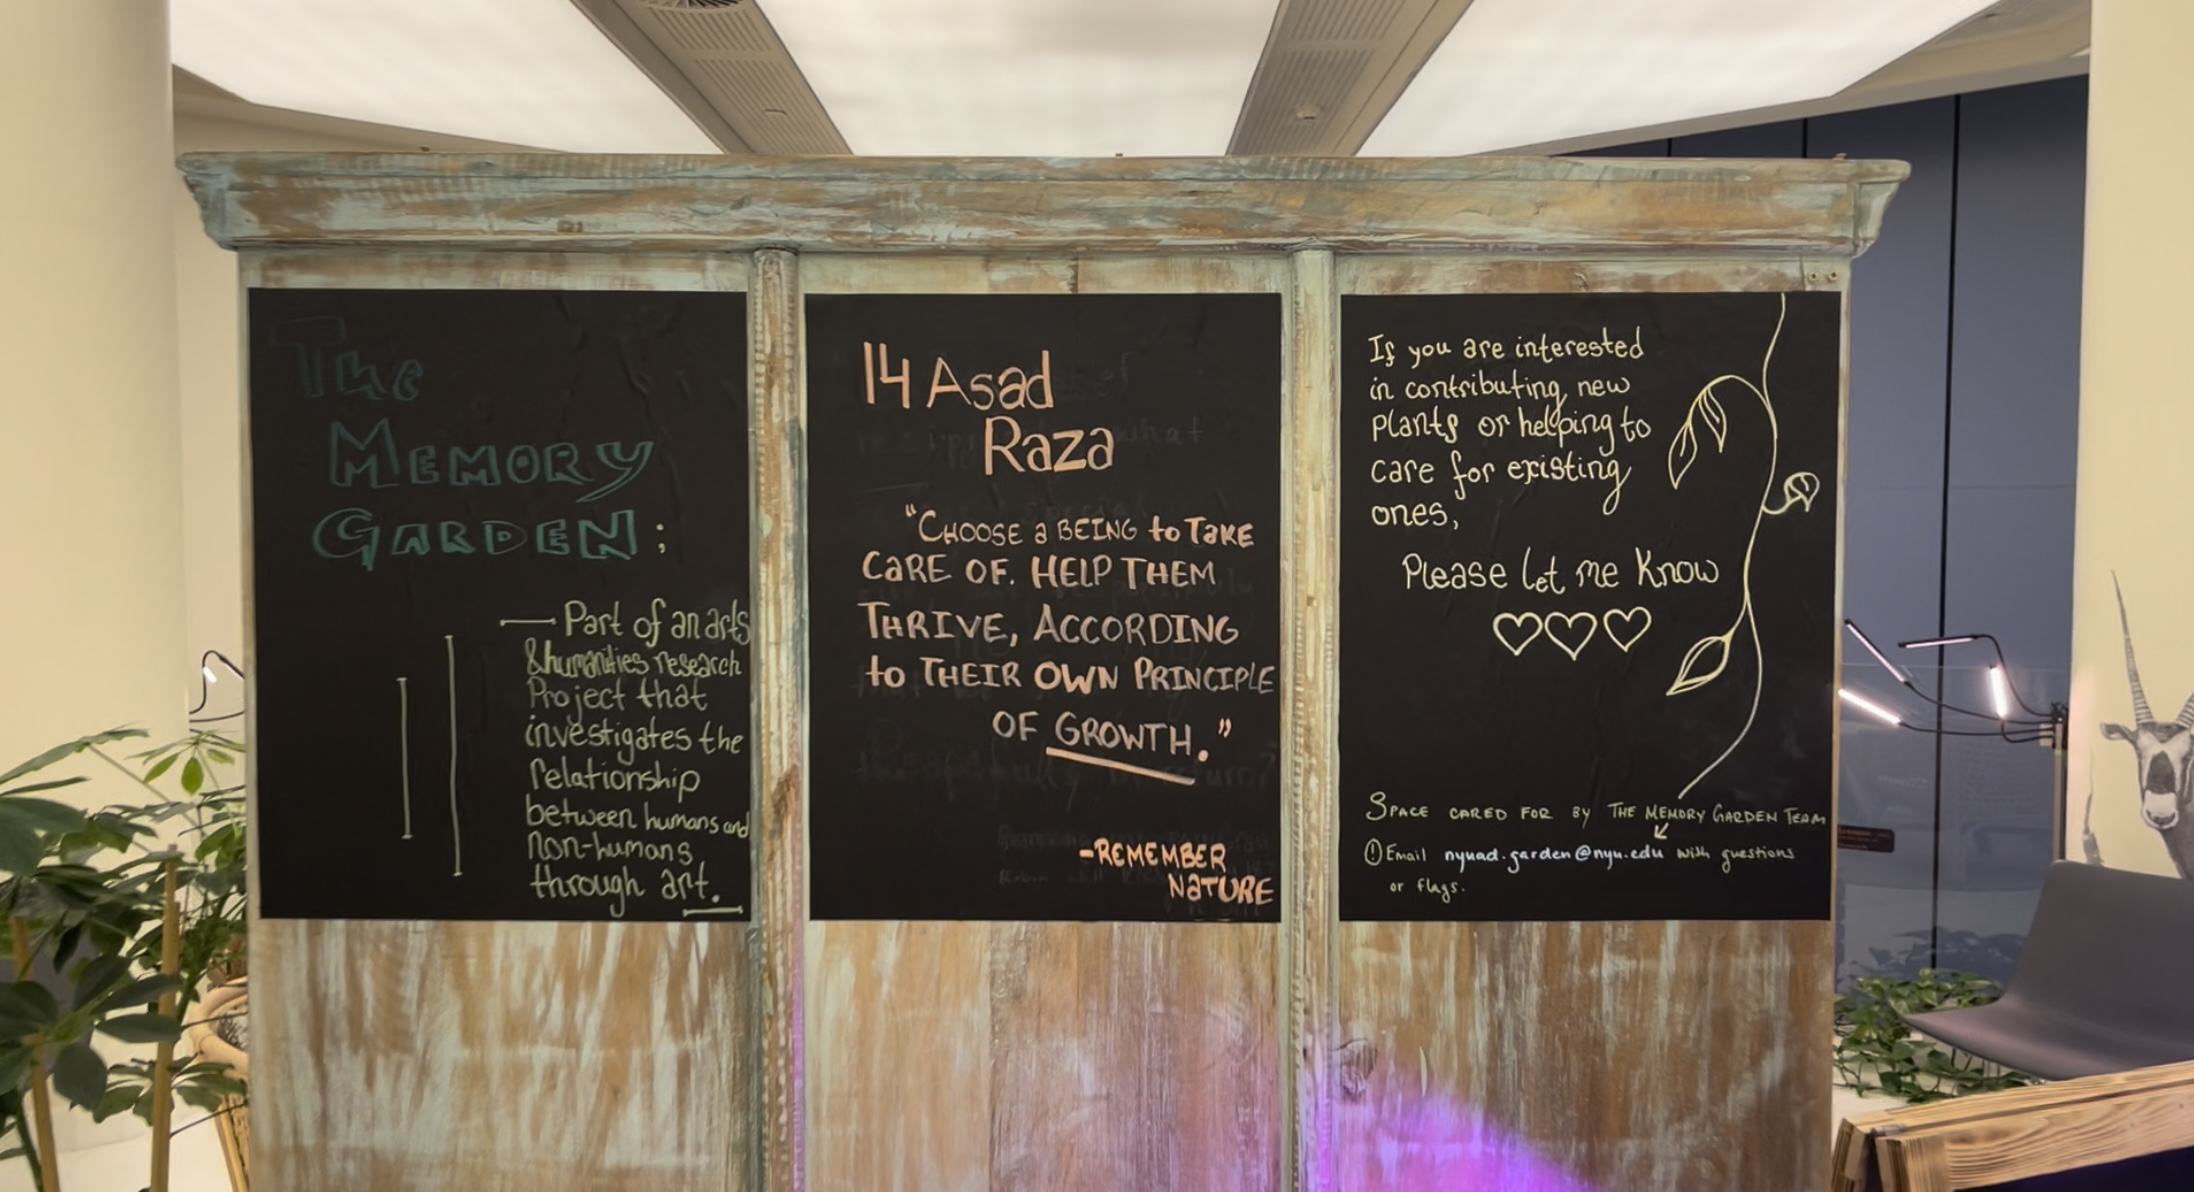 The
MEMORY
GARDEN:
Part of an arts
& humanities research
Project that
investigates the
relationship
between humans and
non-humans
through art.
14 Asad
Raza
"CHOOSE a BEING to TaKE
CaRE OF. HELP THEM
THRIVE, ACCORDING
to THEIR OWN PRINCIPLE
OF GROWTH."
-REMEMBER
NaTURE
If you are interested
in contributing new
plants or helping to
care for existing
ones,
Please let me know
SPACE CARED FOR BY THE MEMORY GARDEN TEAM
! Email nyuad.garden@nyu.edu with questions
or flags.